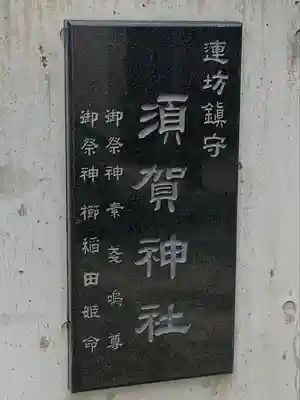 連坊鎮守
須賀神社
御祭神素戔鳴尊
御祭神櫛稲田姫命